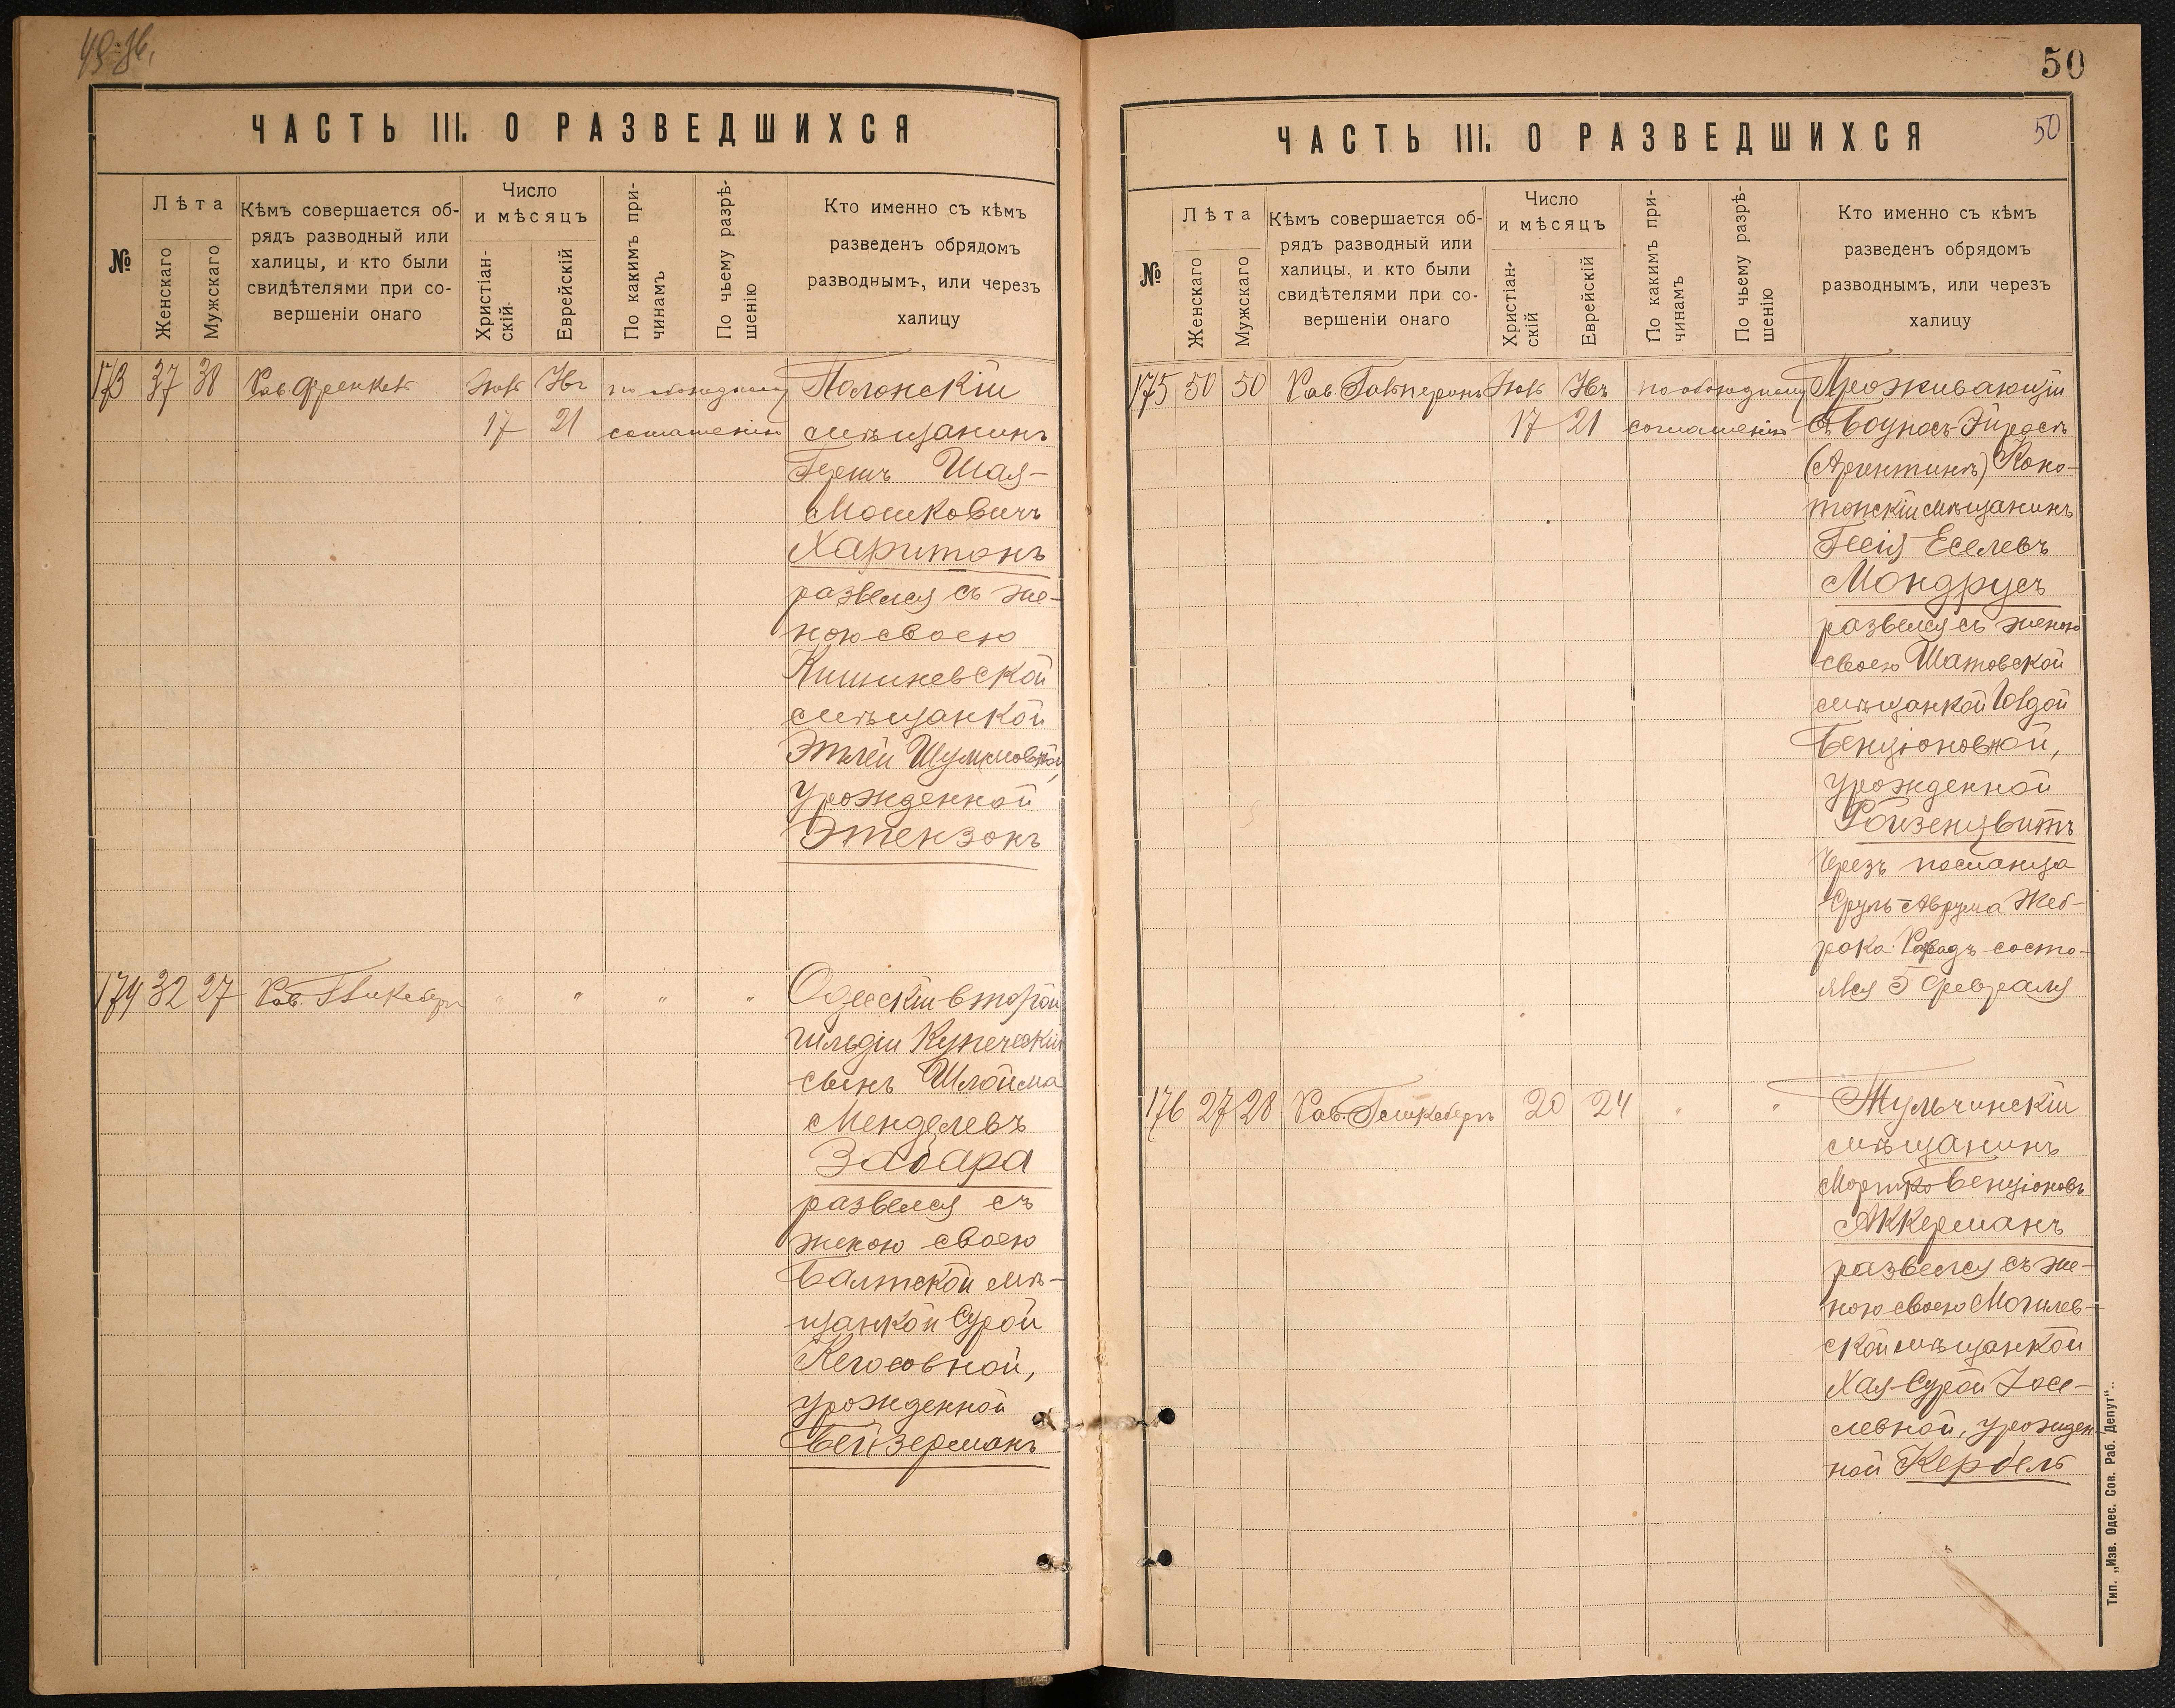 50
ЧАСТЬ III. О РАЗВЕДШИХСЯ
№
Лѣта
Женскаго
Мужскаго
Кѣмъ совершается об-
рядъ разводный или
халицы, и кто были
свидѣтелями при со-
вершеніи онаго
Число
и мѣсяцъ
Христіан-
скій
Еврейскій
По какимъ при-
чинамъ
По чьему разрѣ-
шенію
Кто именно съ кѣмъ
разведенъ обрядомъ
разводнымъ, или черезъ
халицу
173 37 38 Рав. Френкель
17 21
по обоюдному
соглашенію
Полонскій
мѣщанинъ
Гершъ Шая-
Мошковичъ
Харитонъ
развелся съ же-
ною своею
Кишиневской
мѣщанкой
Этлей
урожденной
Этензонъ
174 32 27 Рав.
" " " "
Одесскій второй
гильдіи Купеческій
сынъ Шлойма
Менделевъ
Забара
развелся съ
женою своею
Балтской мѣ-
щанкой Сурой
урожденной
Бейзерманъ
ЧАСТЬ III. О РАЗВЕДШИХСЯ
50
№
Лѣта
Женскаго
Мужскаго
Кѣмъ совершается об-
рядъ разводный или
халицы, и кто были
свидѣтелями при со-
вершеніи онаго
Число
и мѣсяцъ
Христіан-
скій
Еврейскій
По какимъ при-
чинамъ
По чьему разрѣ-
шенію
Кто именно съ кѣмъ
разведенъ обрядомъ
разводнымъ, или черезъ
халицу
175 50 50 Рав. Гальперинъ
17 21
по обоюдному
соглашенію
Проживающій
въ Боуносъ-Эйресѣ
(Аргентинѣ) Коно-
топскій мѣщанинъ
Еселевъ
Мондрусъ
развелся съ женою
своею Шатовской
мѣщанкой
Бенціоновной,
урожденной
Ройзенцвитъ
Черезъ посланца
Сруль-Аврума Жеб-
рака. состо-
ялся 5 Февраля
176 27 28 Рав. 20 24 " "
Тульчинскій
мѣщанинъ
Мортко Бенціоновъ
Аккерманъ
развелся съ же-
ною своею Могилев-
ской мѣщанкой
Хая-Сурой Iосе-
левной, урожден-
ной Кербель
Тип. „Изв. Одес. Сов. Раб. Депут“.